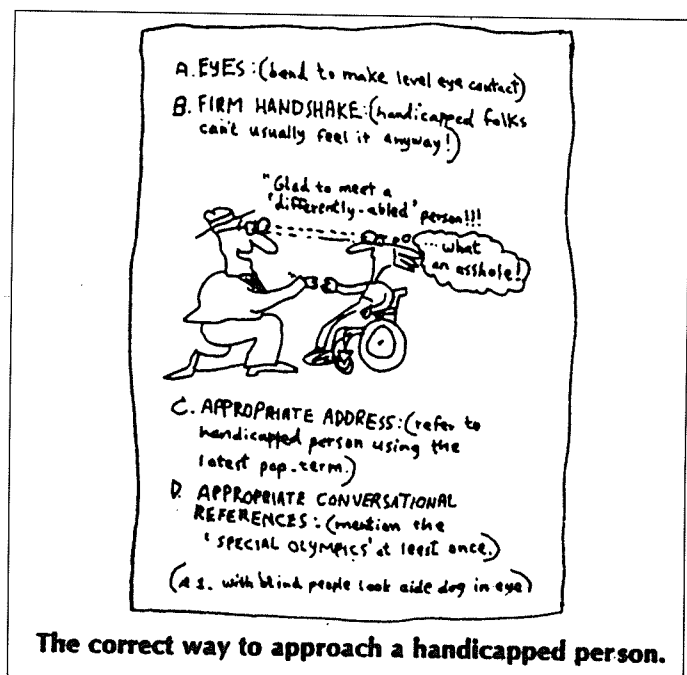 A. EYES: (bend to make level eye contact)
B. FIRM HANDSHAKE: (handicapped folks
can't usually feel it anyway!)
"Glad to meet a
'differently-abled' person!!!
...what
an asshole!
C. APPROPRIATE ADDRESS: (refer to
handicapped person using the
latest pop-term.)
D. APPROPRIATE CONVERSATIONAL
REFERENCES: (mention the
'SPECIAL OLYMPICS' at least once.)
(A 1. with blind people look aide dog in eye)
The correct way to approach a handicapped person.